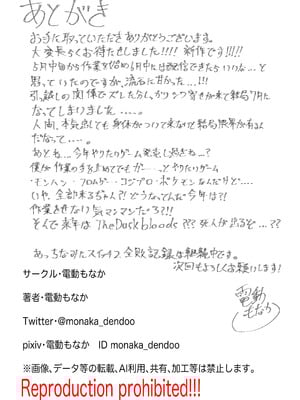 あとがき
お手に取っていただきありがとうございます。
大変長らくお待たせしました!!!! 新作です!!!!
5月中旬から作業を始め6月中には配信できたらいいな…と
思っていたのですが、流石に甘かった…!!!
引っ越しの関係でズレた分しっかりシワ寄せが来て結局7月に
なってしまいました……。
人間、本気出しても身体がついて来なくて結局限界が有るん
だなって……。
あとね…今年やりたいゲーム発売し過ぎね…?
僕が作業の手を止めてでもガーーッとやりたいゲーム
モンハン・フロムゲー・コジプロ・ポケモンなんだけど…
いや、全部来るぢゃん?!どうなってんだ今年は?!
作業させない気マンマンだろ?!!
そんで来年は TheDuskbloods??? 死人が出るぞ…???
あっちなみにスイッチ2、全敗記録は継続中です。
次回もよろしくお願いします!
電動もなか
サークル・電動もなか
著者・電動もなか
Twitter・@monaka_dendoo
pixiv・電動もなか ID monaka_dendoo
※画像、データ等の転載、AI利用、共有、加工等は禁止します。
Reproduction prohibited!!!